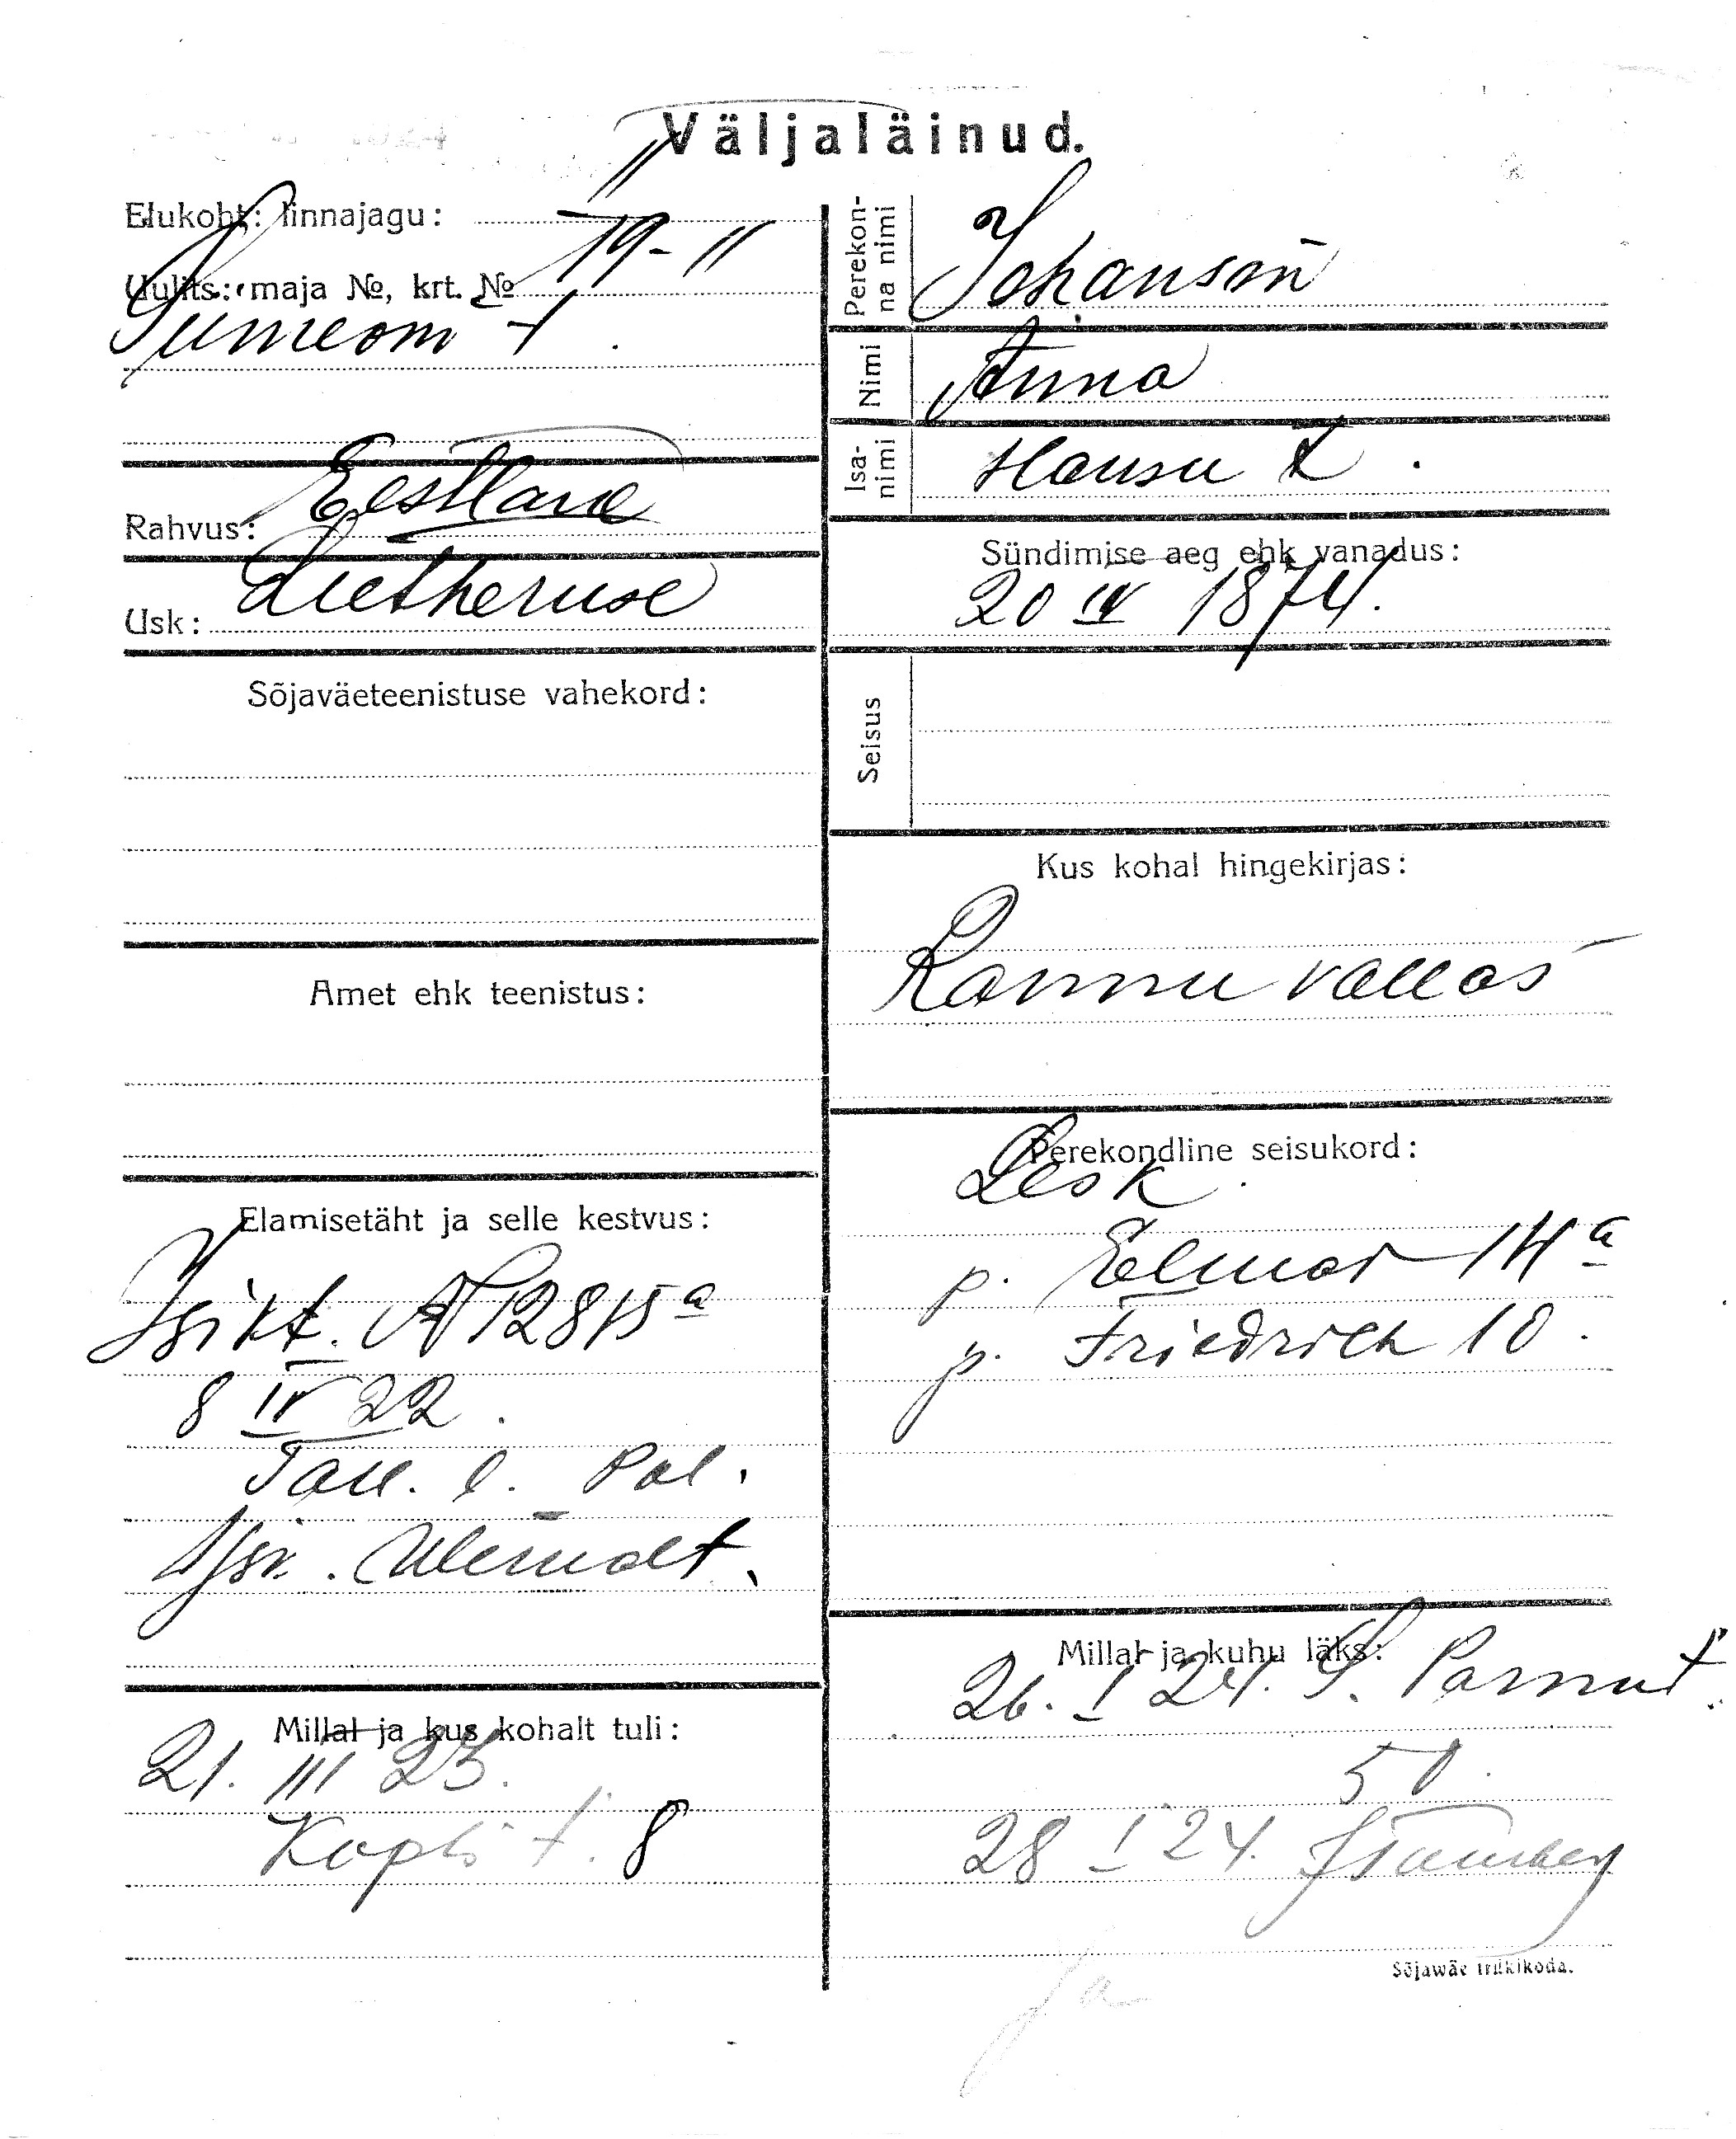 Väljaläinud.
Elukoht: linnajagu: II
Uulits: maja №, krt. № 19-11
t
Rahvus: Eestlane
Usk: Lutheruse
Sõjaväeteenistuse vahekord:
Amet ehk teenistus:
Elamisetäht ja selle kestvus:
Isikt. № 12815 a
8 IV 22.
Tall. l. Pol.
Millal ja kus kohalt tuli:
21. III 23.
Kopli t. 8
Perekonna nimi Johanson
Nimi Anna
Isanimi Hansu t.
Sündimise aeg ehk vanadus:
20 IV 1874.
Seisus
Kus kohal hingekirjas:
Rannu vallas
Perekondline seisukord:
Lesk.
p. Elmar 14 a
p. Friedrich 10.
Millal ja kuhu läks:
26. I 24. S. Pärnu t.
28 I 24.
Sõjawäe trükikoda.